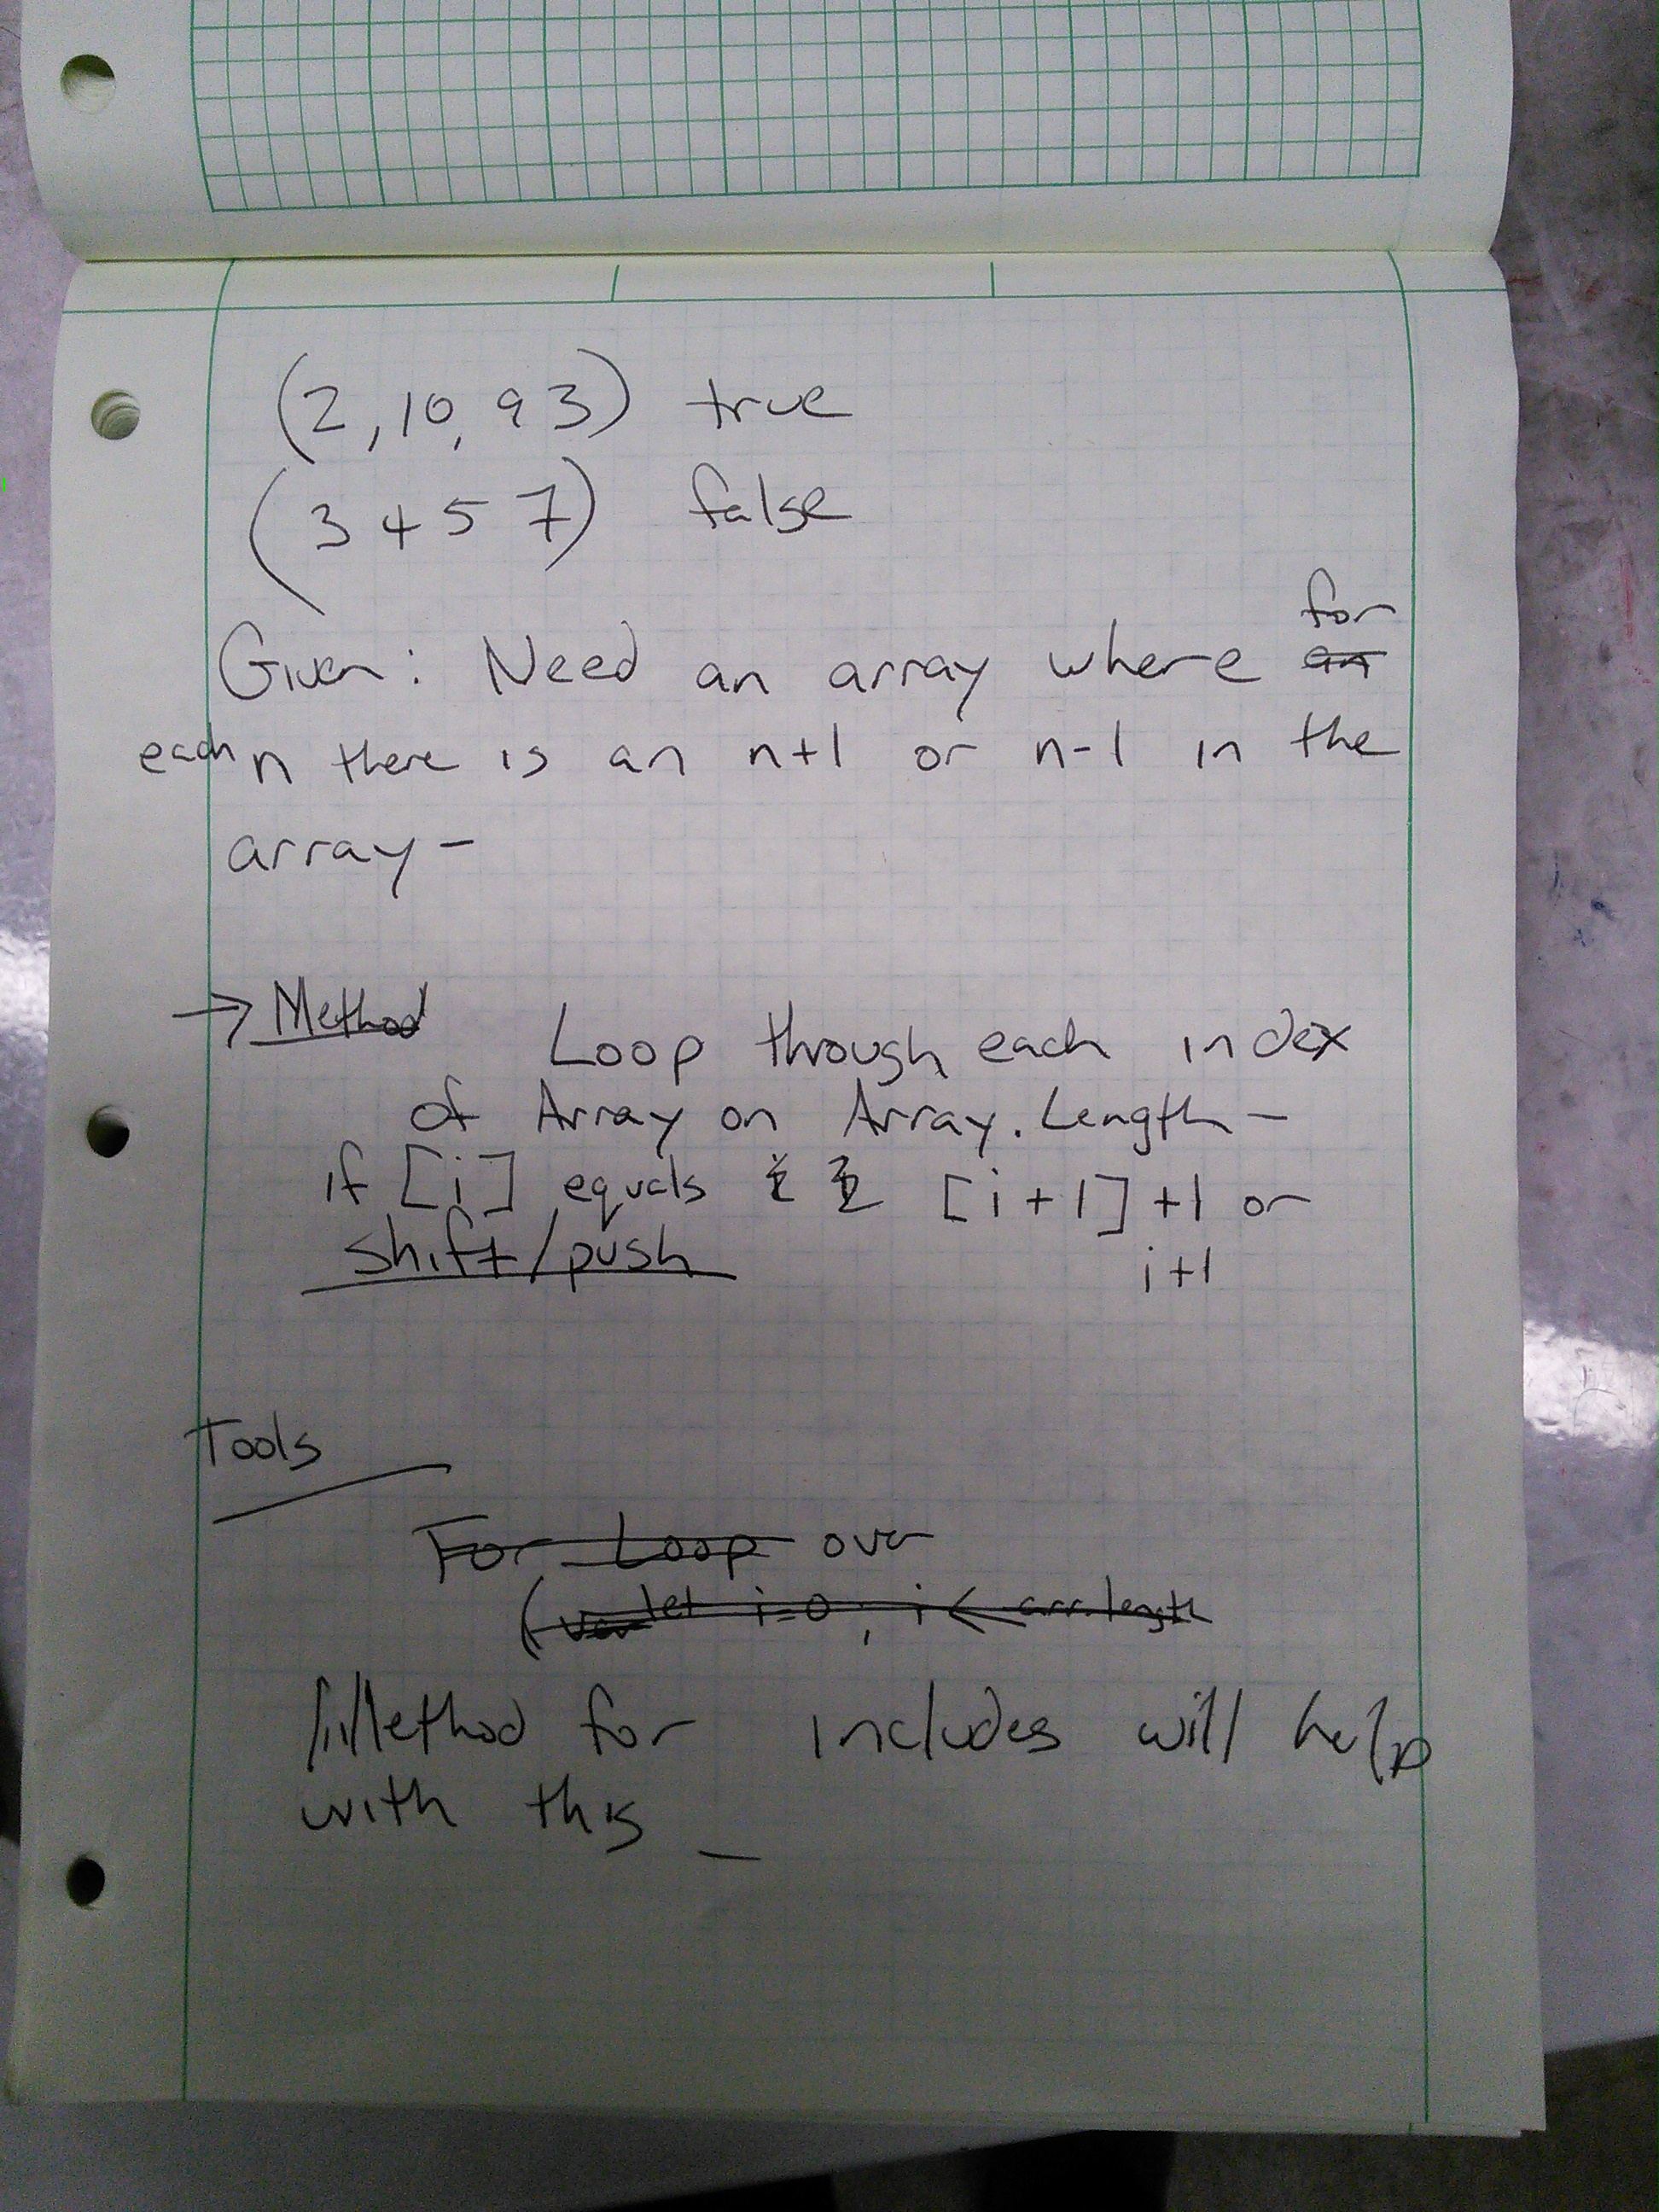 (2, 10, 9 3) true
(3 4 5 7) false
for
Given: Need an array where an
each n there is an n+1 or n-1 in the
array -
→ Method Loop through each index
of Array on Array.Length -
if [i] equals [i+1]+1 or
shift/push i+1
Tools
For Loop over
(var let i=0; i< arr.length
Method for includes will help
with this _